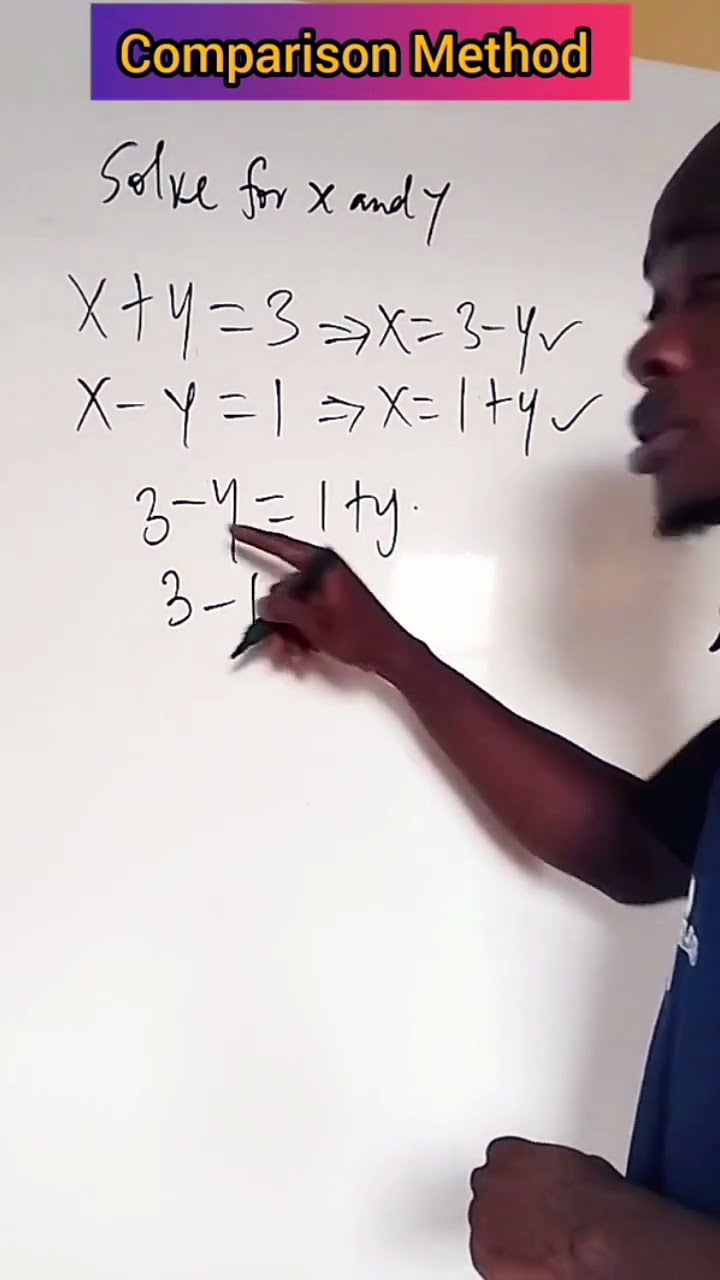 Comparison Method
Solve for x and y
x+y=3 ⇒ x=3-y✓
x-y=1 ⇒ x=1+y✓
3-y=1+y.
3-1